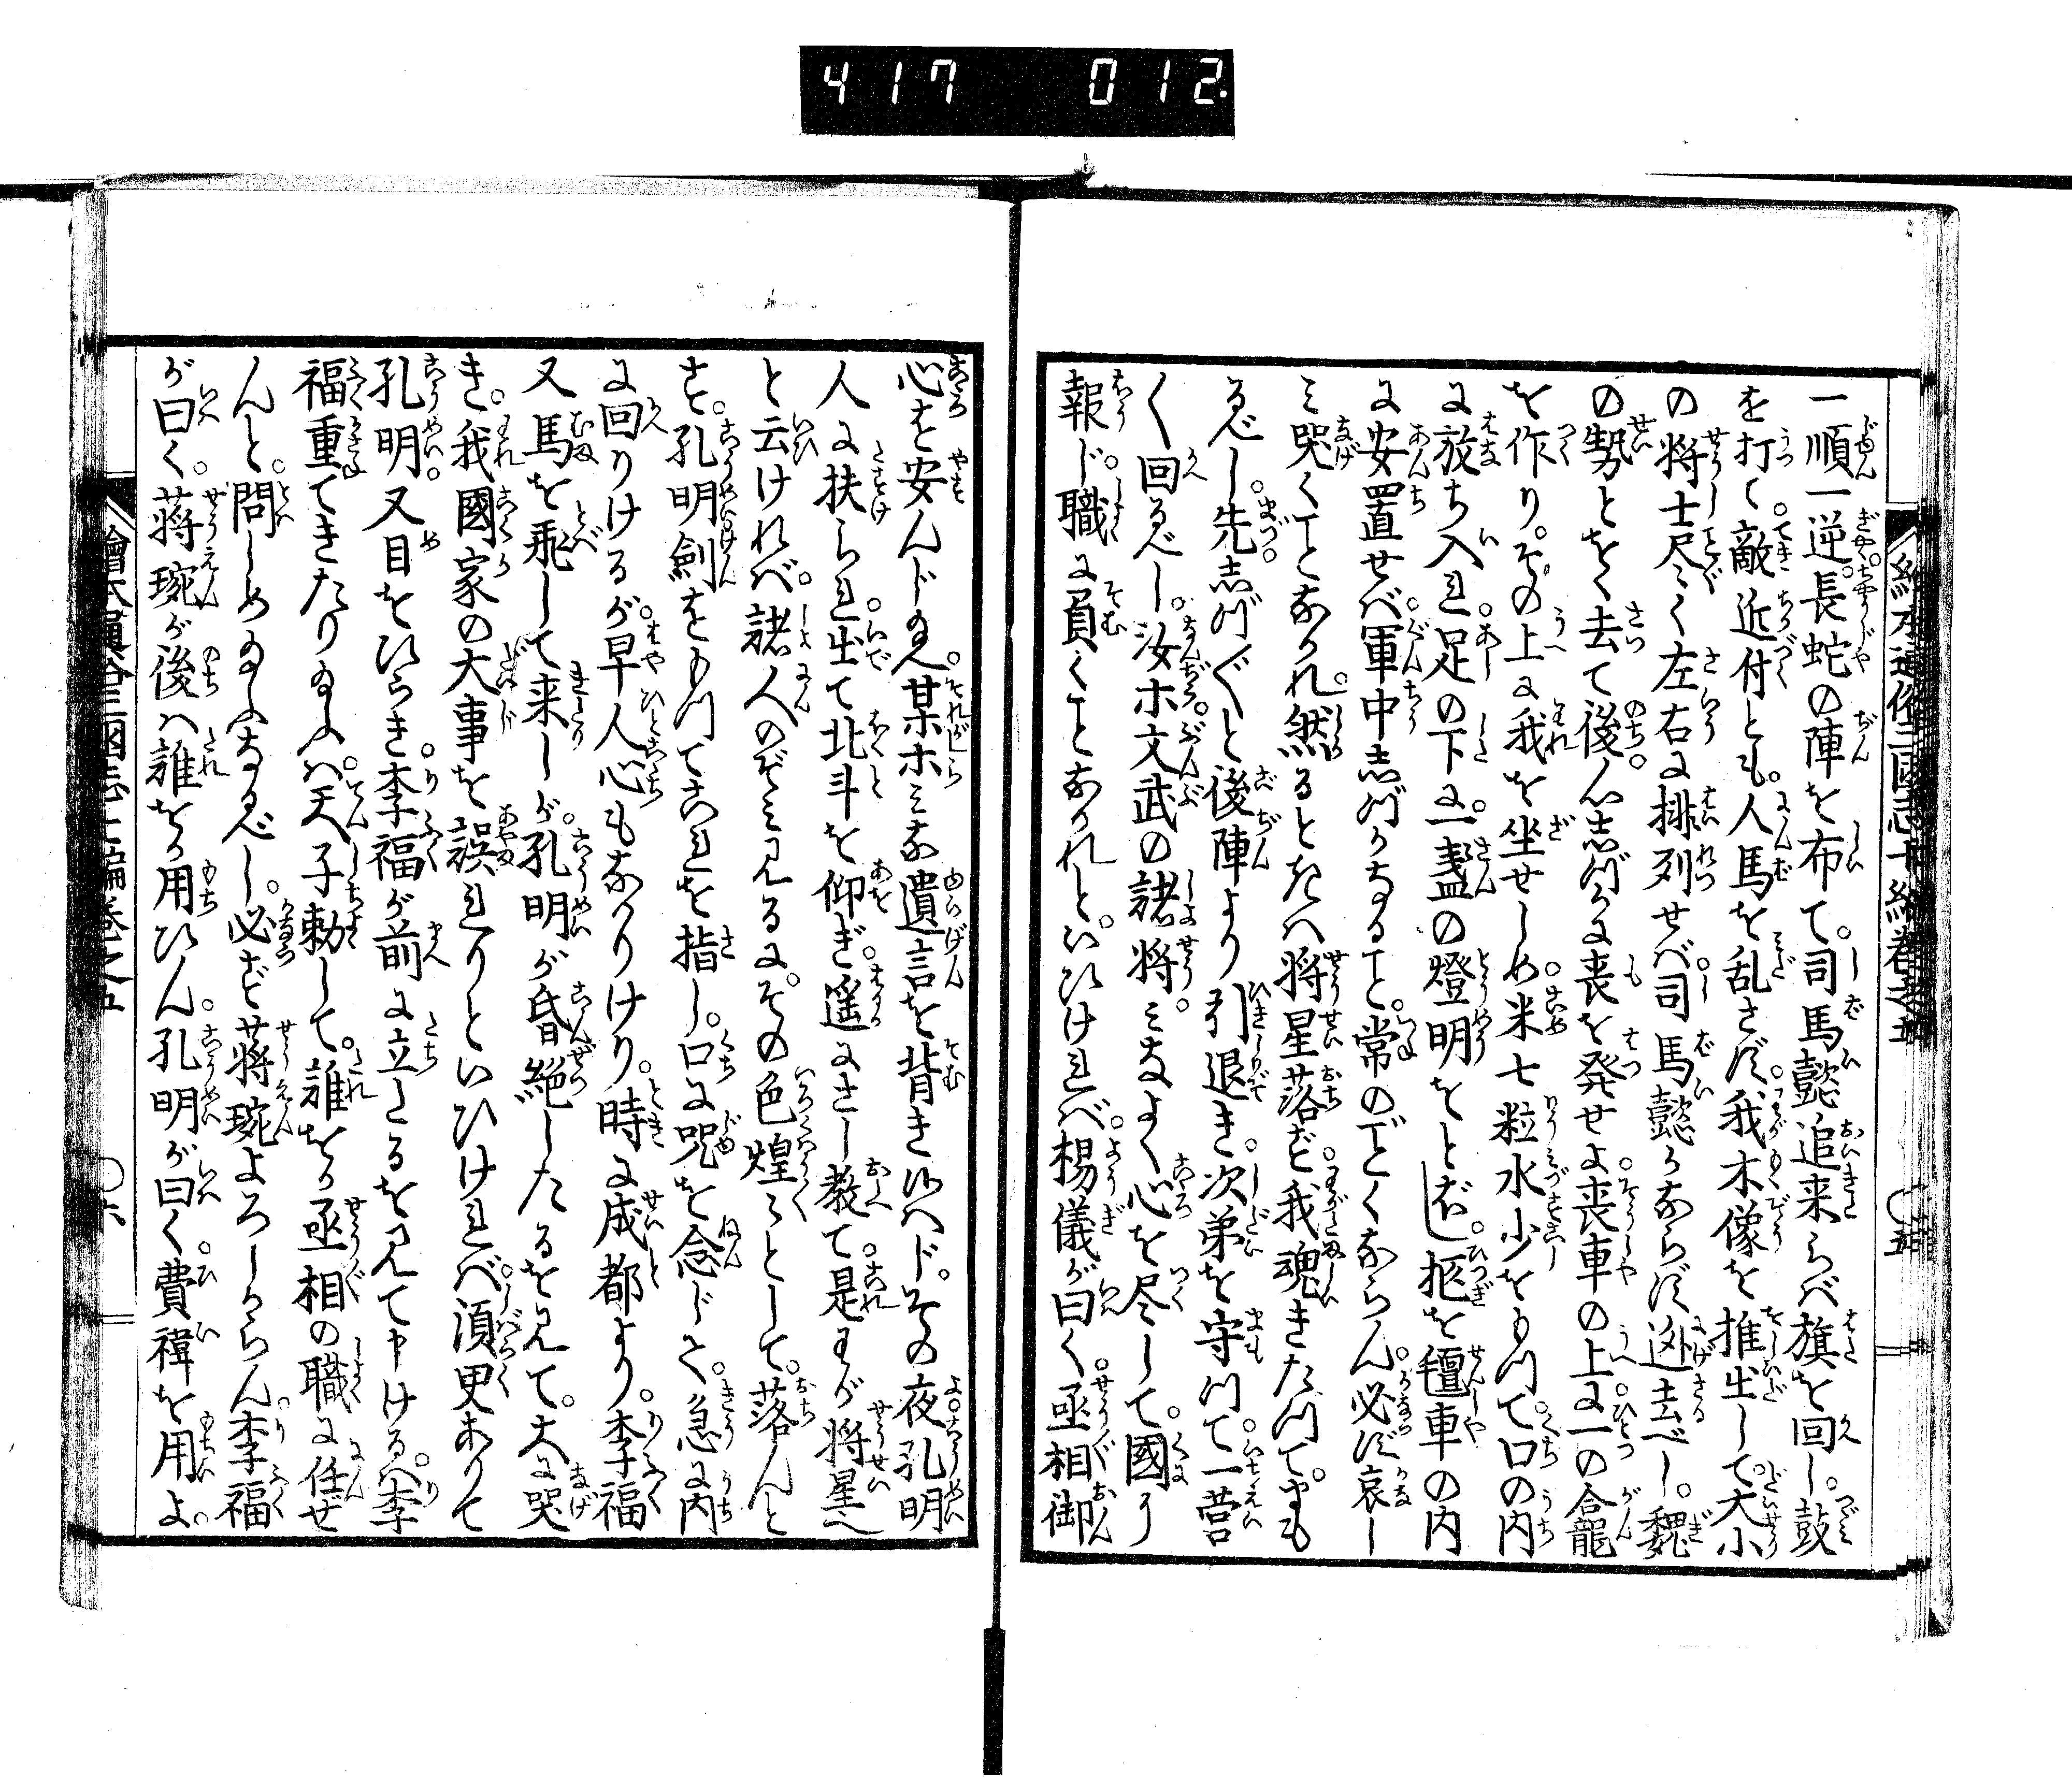 417 012
一順一逆。長蛇の陣を布て。司馬懿追来らば旗を回し。鼓
を打て。敵近付とも。人馬を乱さず。我木像を推出して。大小
の将士尽く左右に排列せば。司馬懿かならず迯去べし。魏
の勢とをく去て後。心志づかに喪を発せよ。喪車の上に一の合龕
を作り。その上に我を坐せしめ。米七粒水少をもつて。口の内
に放ち入れ。足の下に。一盞の燈明をとぼし。柩を氊車の内
に安置せば。軍中志づかなること。常のごとくならん。必ず哀し
み哭くことなかれ。然るときは将星落ず。我魂きたつて。守も
るべし。先志づ〳〵と後陣より引退き。次第を守つて。一営
く回るべし。汝ホ文武の諸将。みなよく心を尽して。國に
報じ。職に負くことなかれと。いひければ。楊儀が曰く。丞相御
心を安んじ玉へ。某ホみな遺言を背き候はじ。その夜孔明
人に扶られ。出て北斗を仰ぎ。遥にさし教て。是わが将星
と云ければ。諸人のぞみ見るに。その色煌〻として。落んと
す。孔明剣をもつてこれを指し。口に咒を念じて。急に内
に回りけるが。早人心もなかりけり。時に成都より。李福
又馬を飛して来しが。孔明が昏絶したるを見て。大に哭
き。我國家の大事を誤れりといひければ。須更ありて
孔明。又目をひらき。李福が前に立たるを見て申けるは。李
福重てきたり玉ふは。天子勅して。誰をか丞相の職に任せ
んと。問しめ玉ふなるべし。必ず蒋琬よろしからん。李福
が曰く。蒋琬が後は誰をか用ひん。孔明が曰く。費禕を用よ。